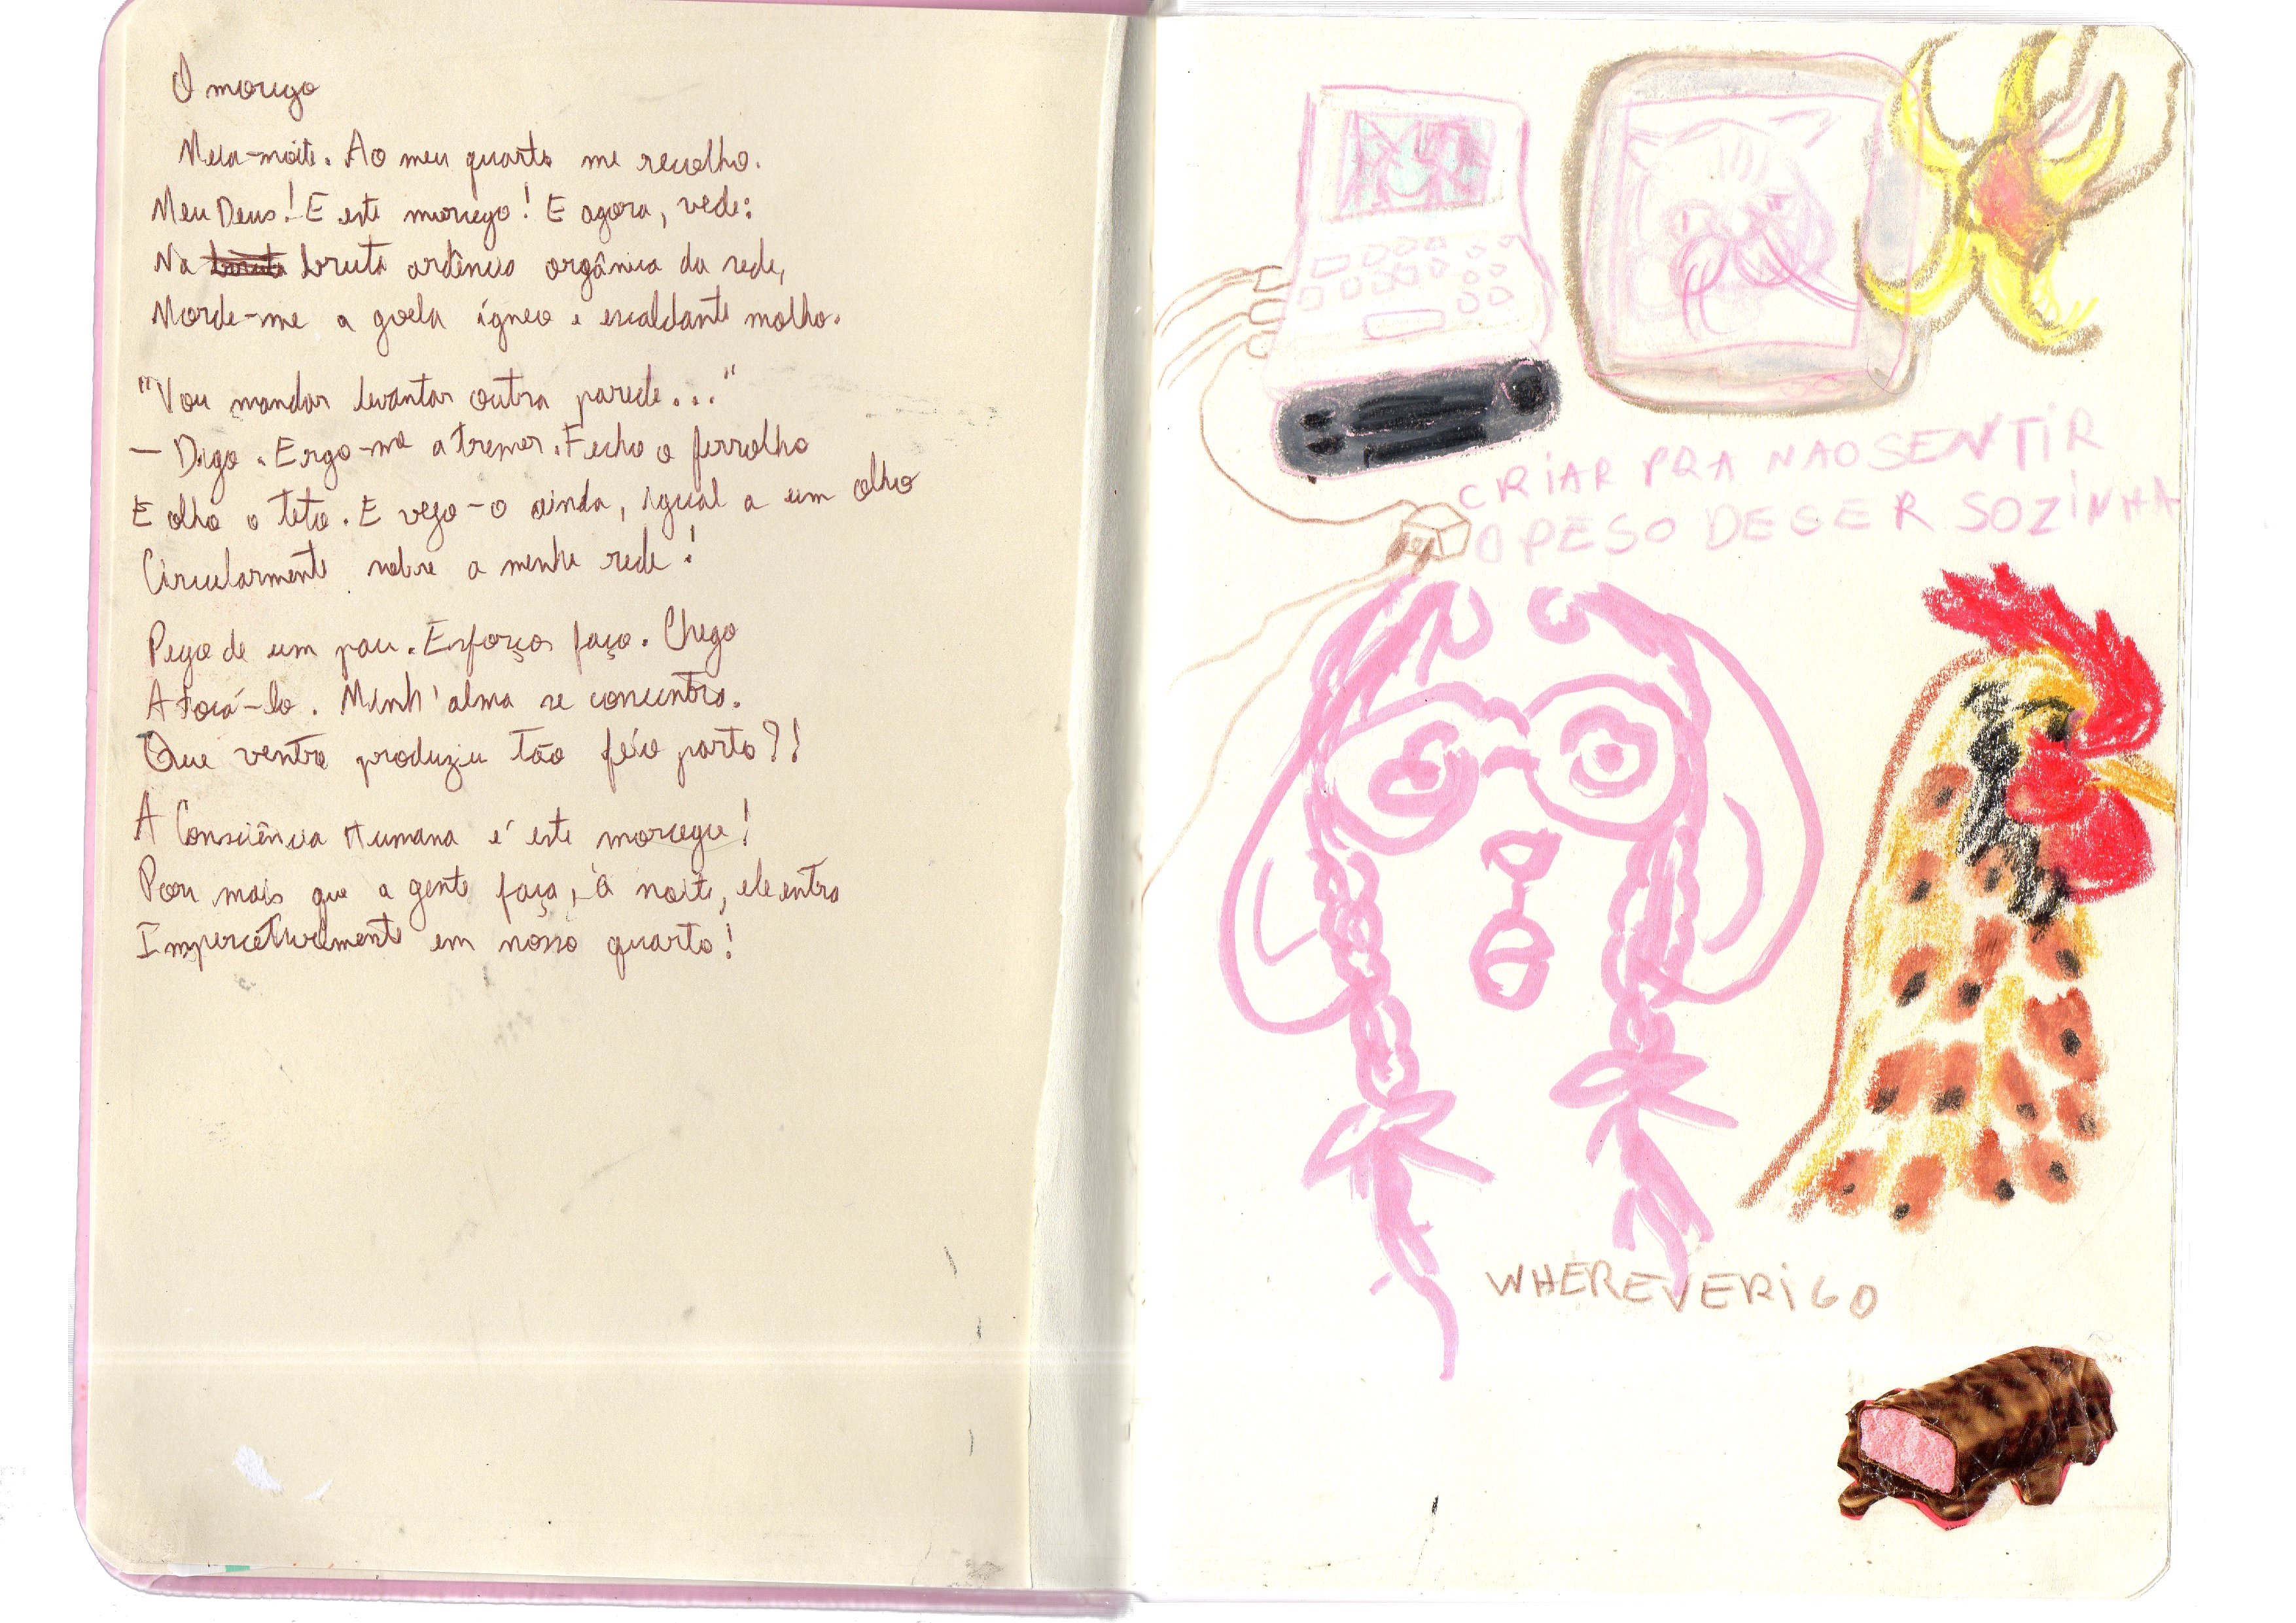 O morcego
Meia-noite. Ao meu quarto me recolho.
Meu Deus! E este morcego! E agora, vede:
Na bruta ardência orgânica da rede,
Morde-me a goela ígneo e escaldante molho.
"Vou mandar levantar outra parede..."
— Digo. Ergo-me a tremer. Fecho o ferrolho
E olho o teto. E vejo-o ainda, igual a um olho
Circularmente sobre a minha rede!
Pego de um pau. Esforços faço. Chego
A tocá-lo. Minh'alma se concentra.
Que ventre produziu tão feio parto?!
A Consciência Humana é este morcego!
Por mais que a gente faça, à noite, ele entra
Imperceptivelmente em nosso quarto!
CRIAR PRA NAO SENTIR
O PESO DE SER SOZINHA
WHEREVERIGO